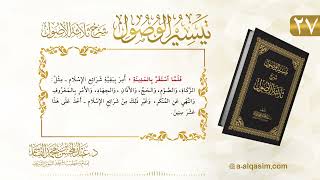 تيسير الوصول شرح ثلاثة الأصول
٢٧
فَلَمَّا اسْتَقَرَّ بِالمَدِينَةِ ؛ أُمِرَ بِبَقِيَّةِ شَرَائِعِ الإِسْلَامِ ـ مِثْلُ:
الزَّكَاةِ، وَالصَّوْمِ، وَالحَجِّ، وَالأَذَانِ، وَالجِهَادِ، وَالأَمْرِ بِالمَعْرُوفِ
وَالنَّهْيِ عَنِ المُنْكَرِ، وَغَيْرِ ذَلِكَ مِنْ شَرَائِعِ الإِسْلَامِ ـ أَخَذَ عَلَى هَذَا
عَشْرَ سِنِينَ.
تيسير الوصول
شرح
ثلاثة الأصول
a-alqasim.com